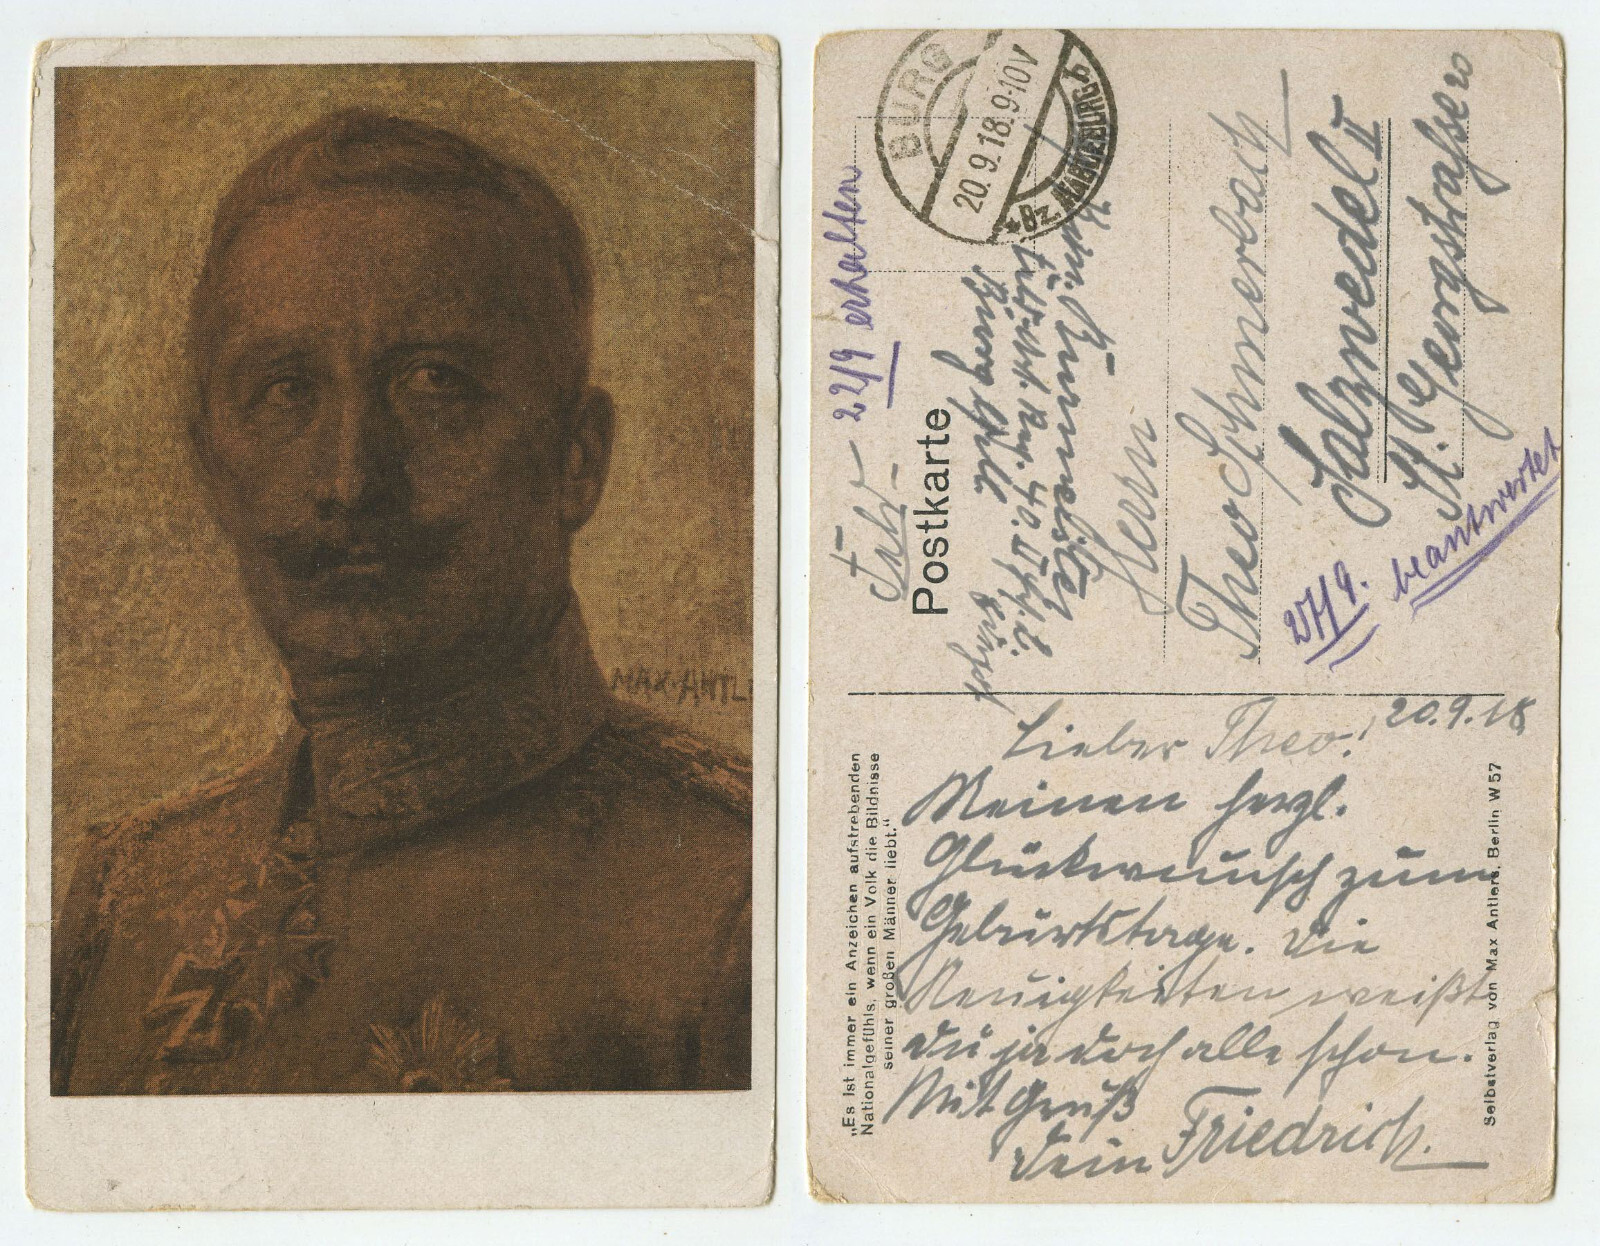 MAX·ANTL
BURG
20.9.18.9-10V
*Bz. MAGDEBURG b
22/9 erhalten
Postkarte
Herrn
Theo Schmerbach
Salzwedel II
St. Georgstraße 20
beantwortet
20.9.18
Lieber Theo!
Meinen herzl.
Glückwunsch zum
Geburtstage. Die
Neuigkeiten weißt
Du ja doch alle schon.
Mit Gruß
Dein Friedrich.
„Es ist immer ein Anzeichen aufstrebenden
Nationalgefühls, wenn ein Volk die Bildnisse
seiner großen Männer liebt."
Selbstverlag von Max Antlers, Berlin W 57